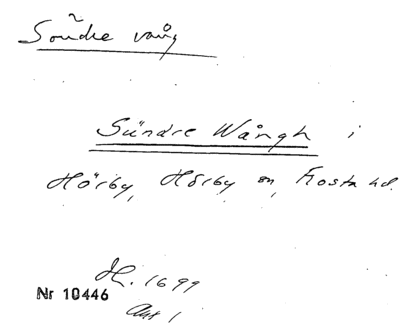 Södre vång
Sündre Wångh i
Hörby, Hörby sn, Frosta hd.
H. 1699
Nr 10446
Akt 1